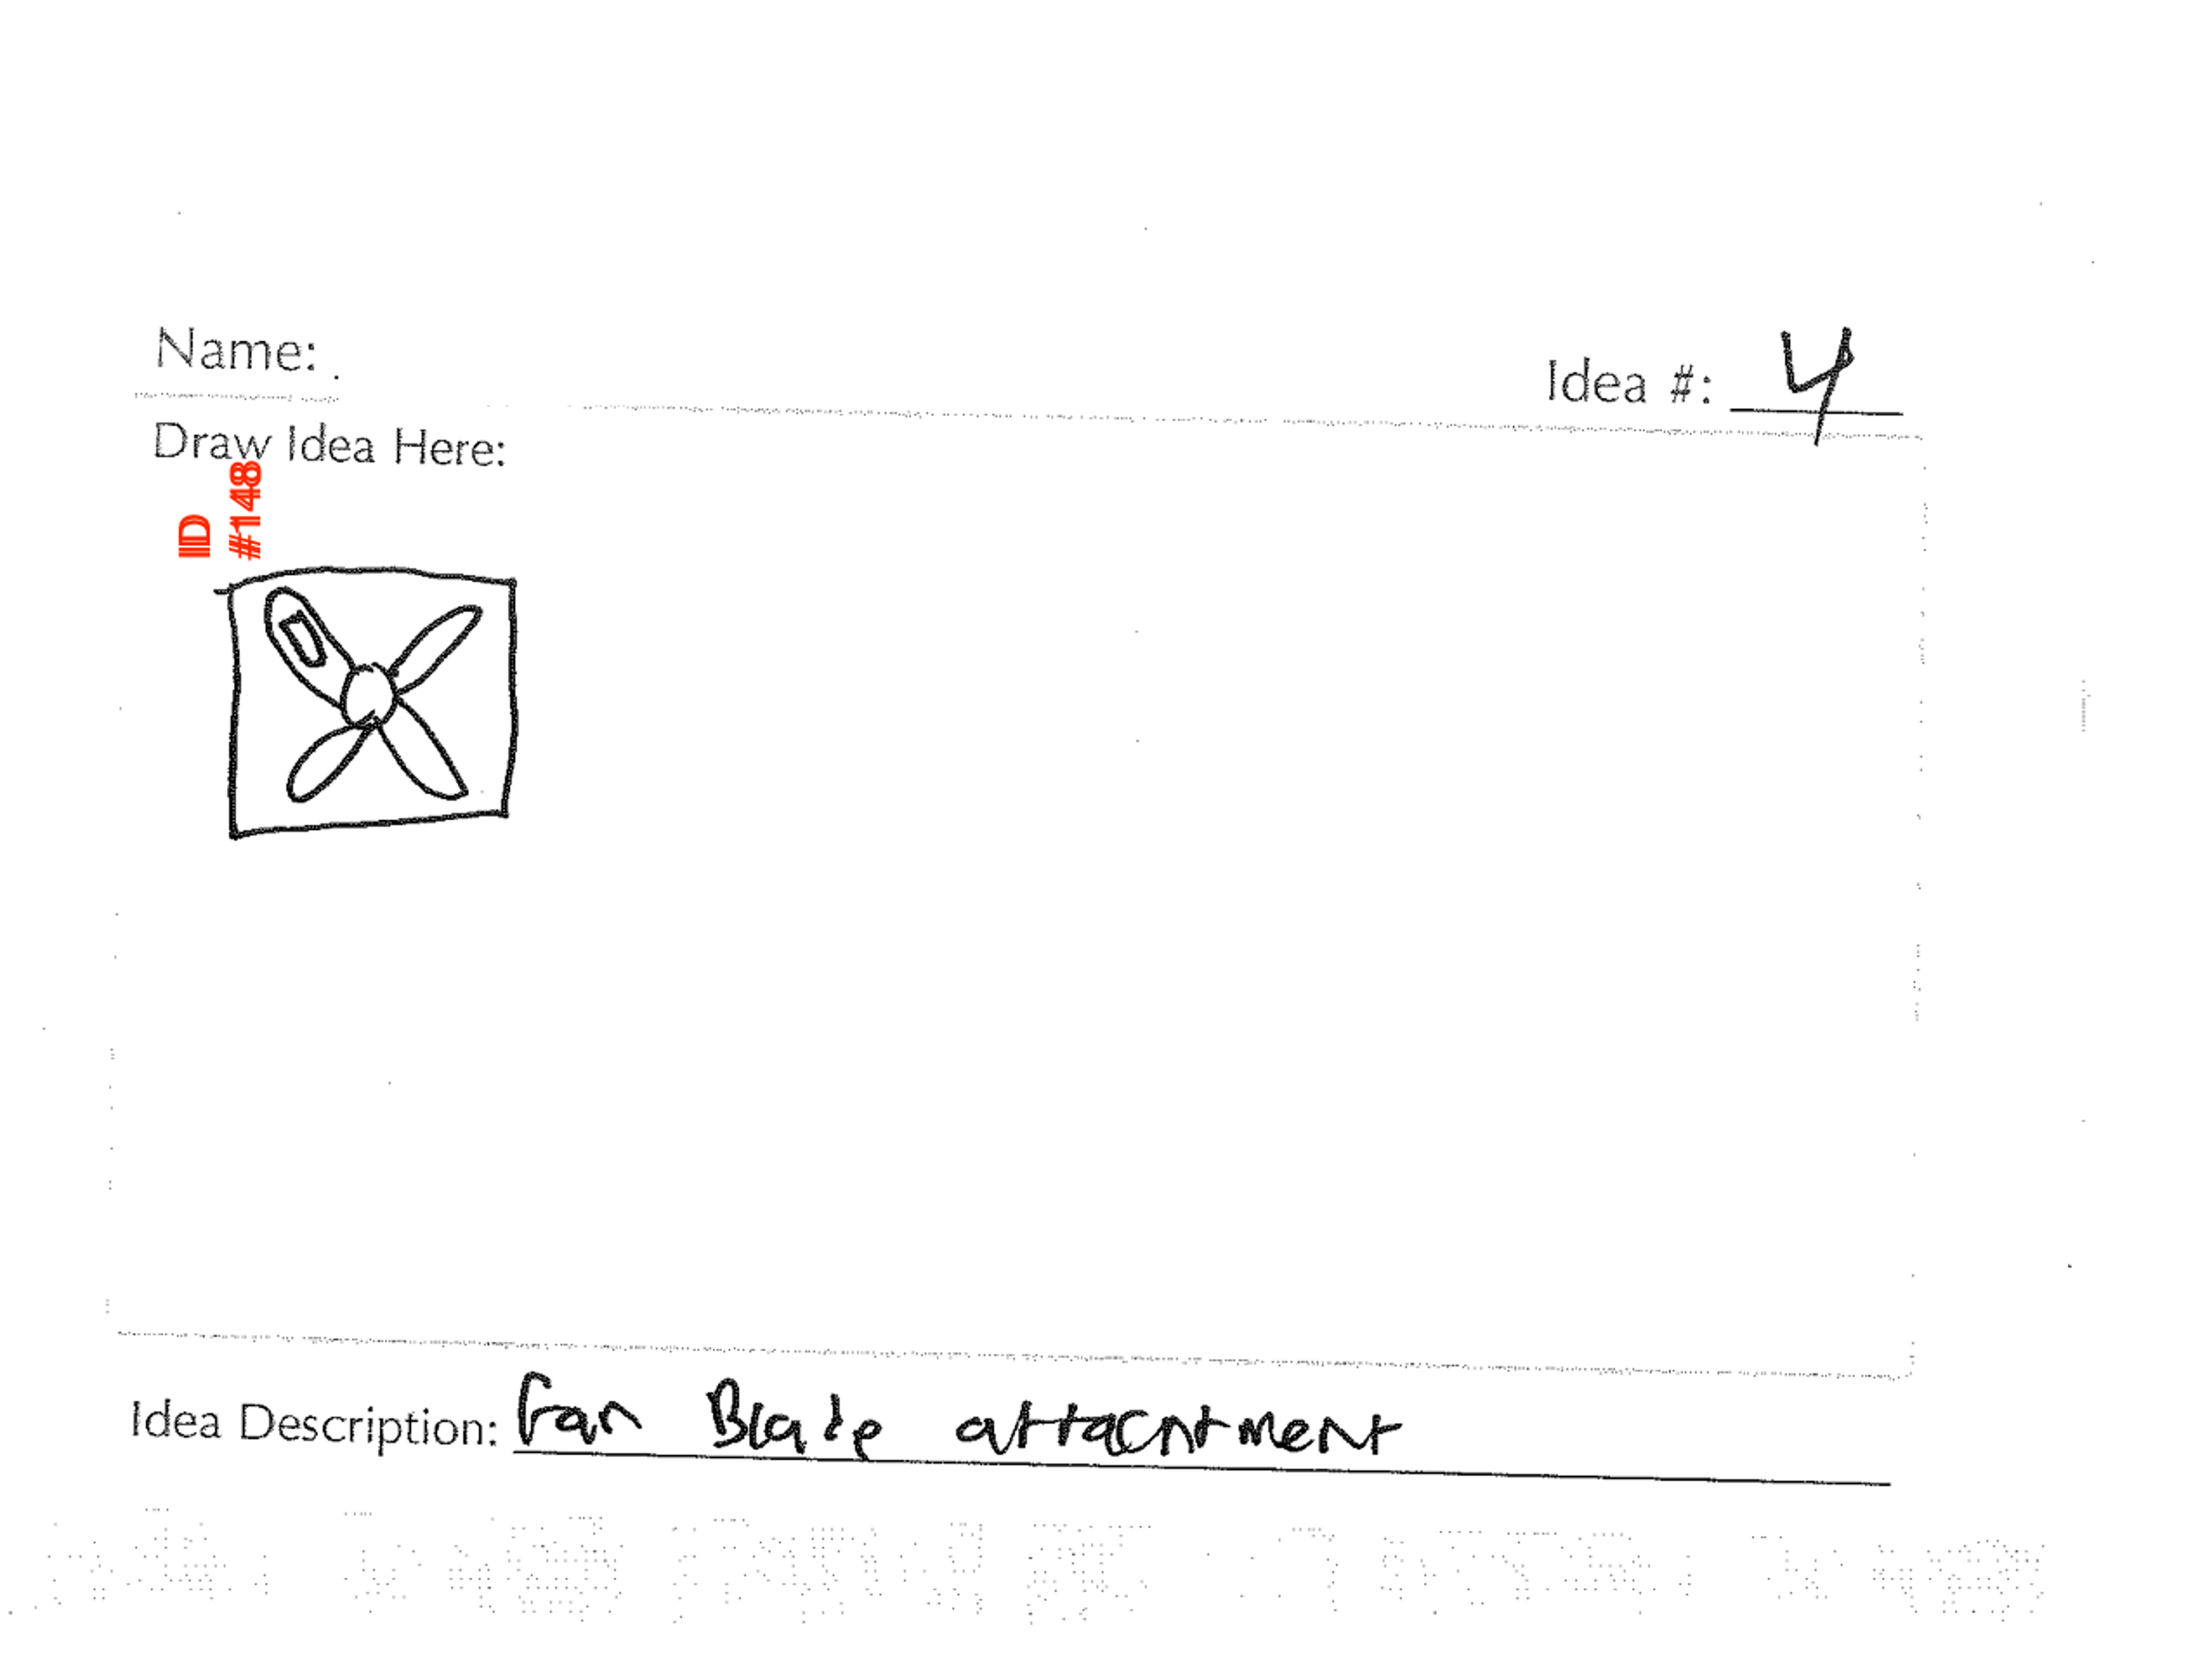 Name:
Idea #: 4
Draw Idea Here:
ID
#148
Idea Description: Fan Blade attachtment